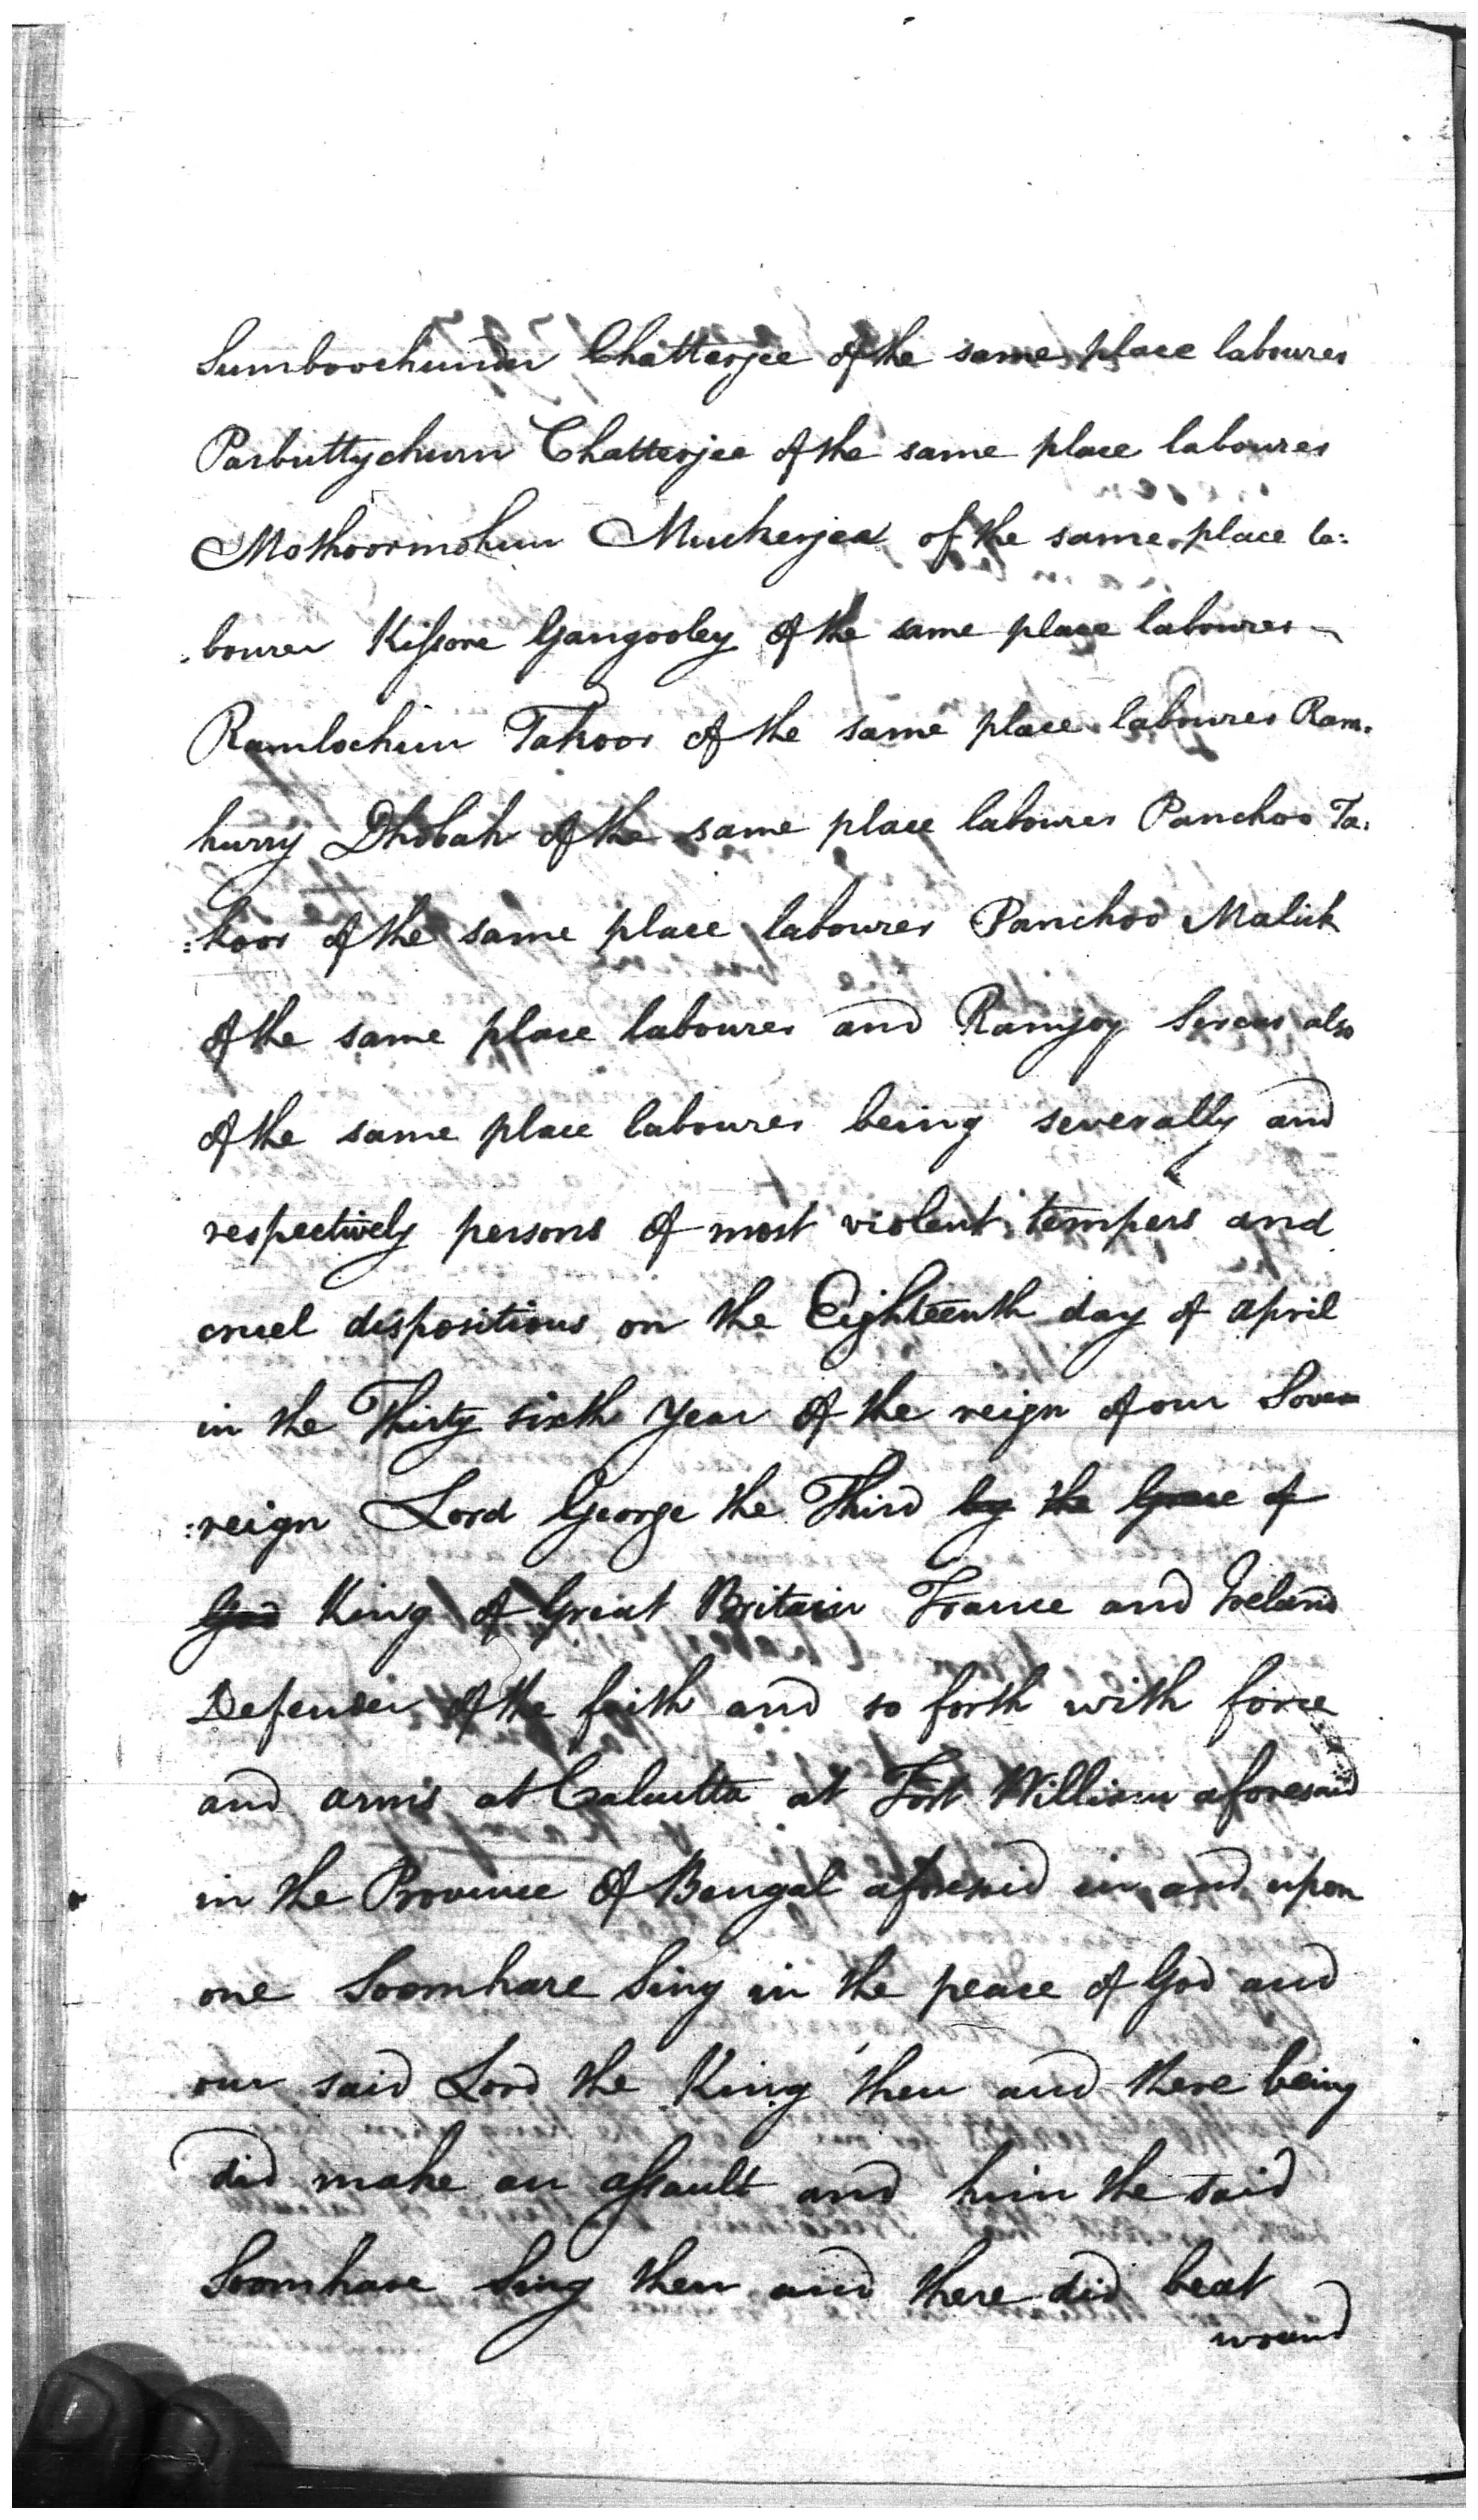 Sumboochunder Chatterjee of the same place labourer
Parbuttychurn Chatterjee of the same place labourer
Mothoormohun Muckerjea of the same place la:
:bourer Kissore Gangooley of the same place labourer
Ramlochun Takoor of the same place labourer Ram:
hurry Dhobah of the same place labourer Panchoo Ta:
:koor of the same place labourer Panchoo Malick
of the same place labourer and Ramjoy Sircar also
of the same place labourer being severally and
respectively persons of most violent tempers and
cruel dispositions on the Eighteenth day of April
in the Thirty sixth year of the reign of our Sove
:reign Lord George the Third by the Grace of
God King of Great Britain France and Ireland
Defender of the faith and so forth with force
and arms at Calcutta at Fort William aforesaid
in the Province of Bengal aforesaid in and upon
one Soomhare Sing in the peace of God and
our said Lord the King then and there being
did make an assault and him the said
Soomhare Sing then and there did beat
wound